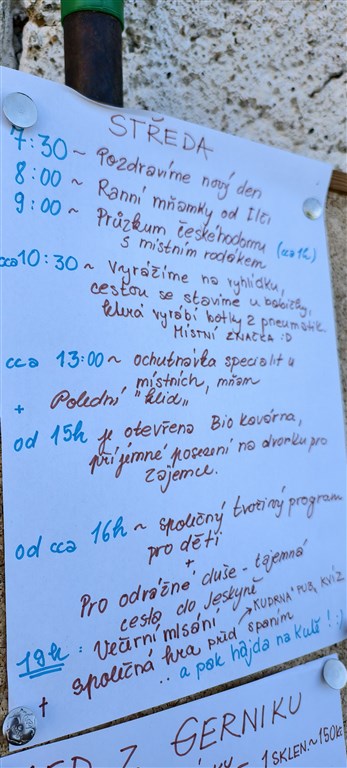 STŘEDA
7:30 ~ Pozdravíme nový den
8:00 ~ Ranní mňamky od Ilči
9:00 ~ Průzkum českého domu (cca 1h)
s místním rodákem
cca 10:30 ~ Vyrážíme na vyhlídku,
cestou se stavíme u babičky,
která vyrábí botky z pneumatik
MÍSTNÍ ZNAČKA :D
cca 13:00 ~ ochutnávka specialit u
místních, mňam
+ Polední "klid"
od 15h je otevřena Bio kavárna,
příjemné posezení na dvorku pro
zájemce.
od cca 16h ~ společný tvořivý program
pro děti
+
Pro odrážné duše - tajemná
cesta do Jeskyně
19h : Večerní mlsání → KUDRNA PUB KVÍZ
+ společná hra před spaním
.. a pak hajda na kutě! :)
Z GERNIKU
1 SKLEN. ~ 150kč